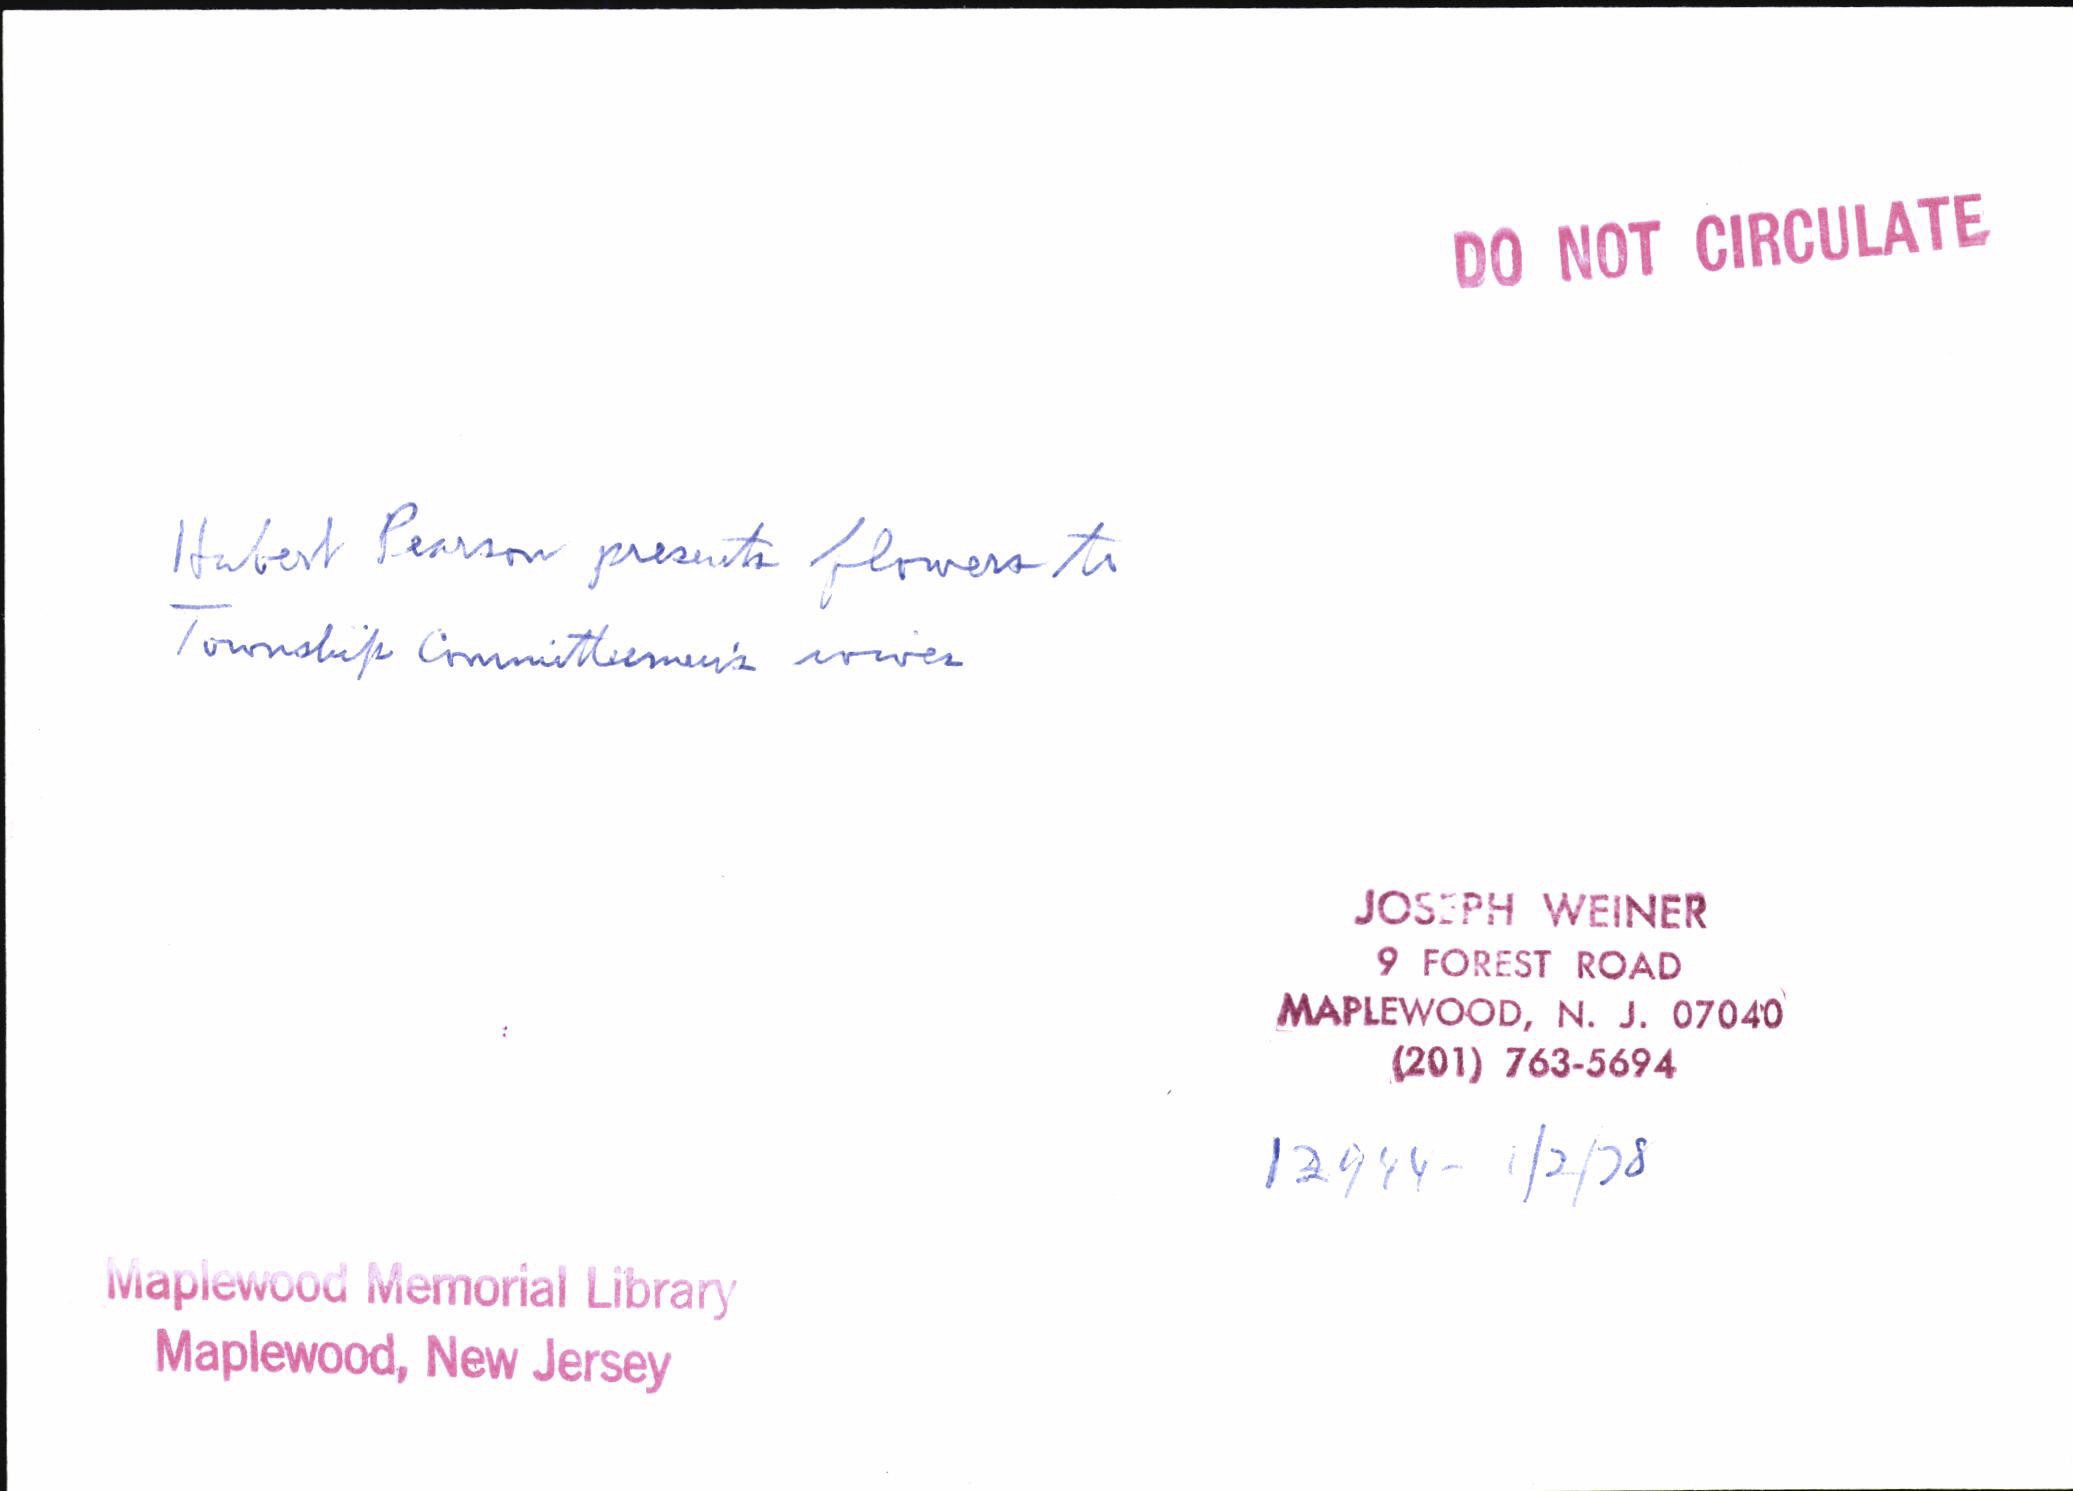 DO NOT CIRCULATE
Hubert Pearson presents flowers to
Township Committeemen's wives
JOSEPH WEINER
9 FOREST ROAD
MAPLEWOOD, N. J. 07040
(201) 763-5694
12944- 1/2/78
Maplewood Memorial Library
Maplewood, New Jersey